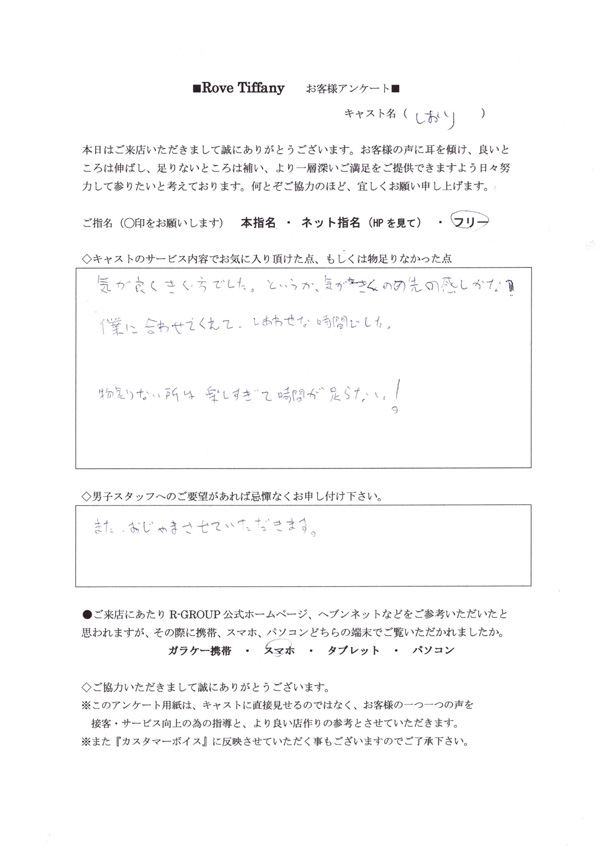 ■Rove Tiffany お客様アンケート■
キャスト名（ しおり ）
本日はご来店いただきまして誠にありがとうございます。お客様の声に耳を傾け、良いと
ころは伸ばし、足りないところは補い、より一層深いご満足をご提供できますよう日々努
力して参りたいと考えております。何とぞご協力のほど、宜しくお願い申し上げます。
ご指名（〇印をお願いします） 本指名 ・ ネット指名（HPを見て） ・ フリー
◇キャストのサービス内容でお気に入り頂けた点、もしくは物足りなかった点
気が良くきく方でした。というか、気が
僕に合わせてくえて、しあわせな時間でした。
物足りない所は楽しすぎて時間が足らない！
◇男子スタッフへのご要望があれば忌憚なくお申し付け下さい。
また、おじゃまさせていただきます。
●ご来店にあたり R-GROUP 公式ホームページ、ヘブンネットなどをご参考いただいたと
思われますが、その際に携帯、スマホ、パソコンどちらの端末でご覧いただかれましたか。
ガラケー携帯 ・ スマホ ・ タブレット ・ パソコン
◇ご協力いただきまして誠にありがとうございます。
※このアンケート用紙は、キャストに直接見せるのではなく、お客様の一つ一つの声を
接客・サービス向上の為の指導と、より良い店作りの参考とさせていただきます。
※また『カスタマーボイス』に反映させていただく事もございますのでご了承下さい。